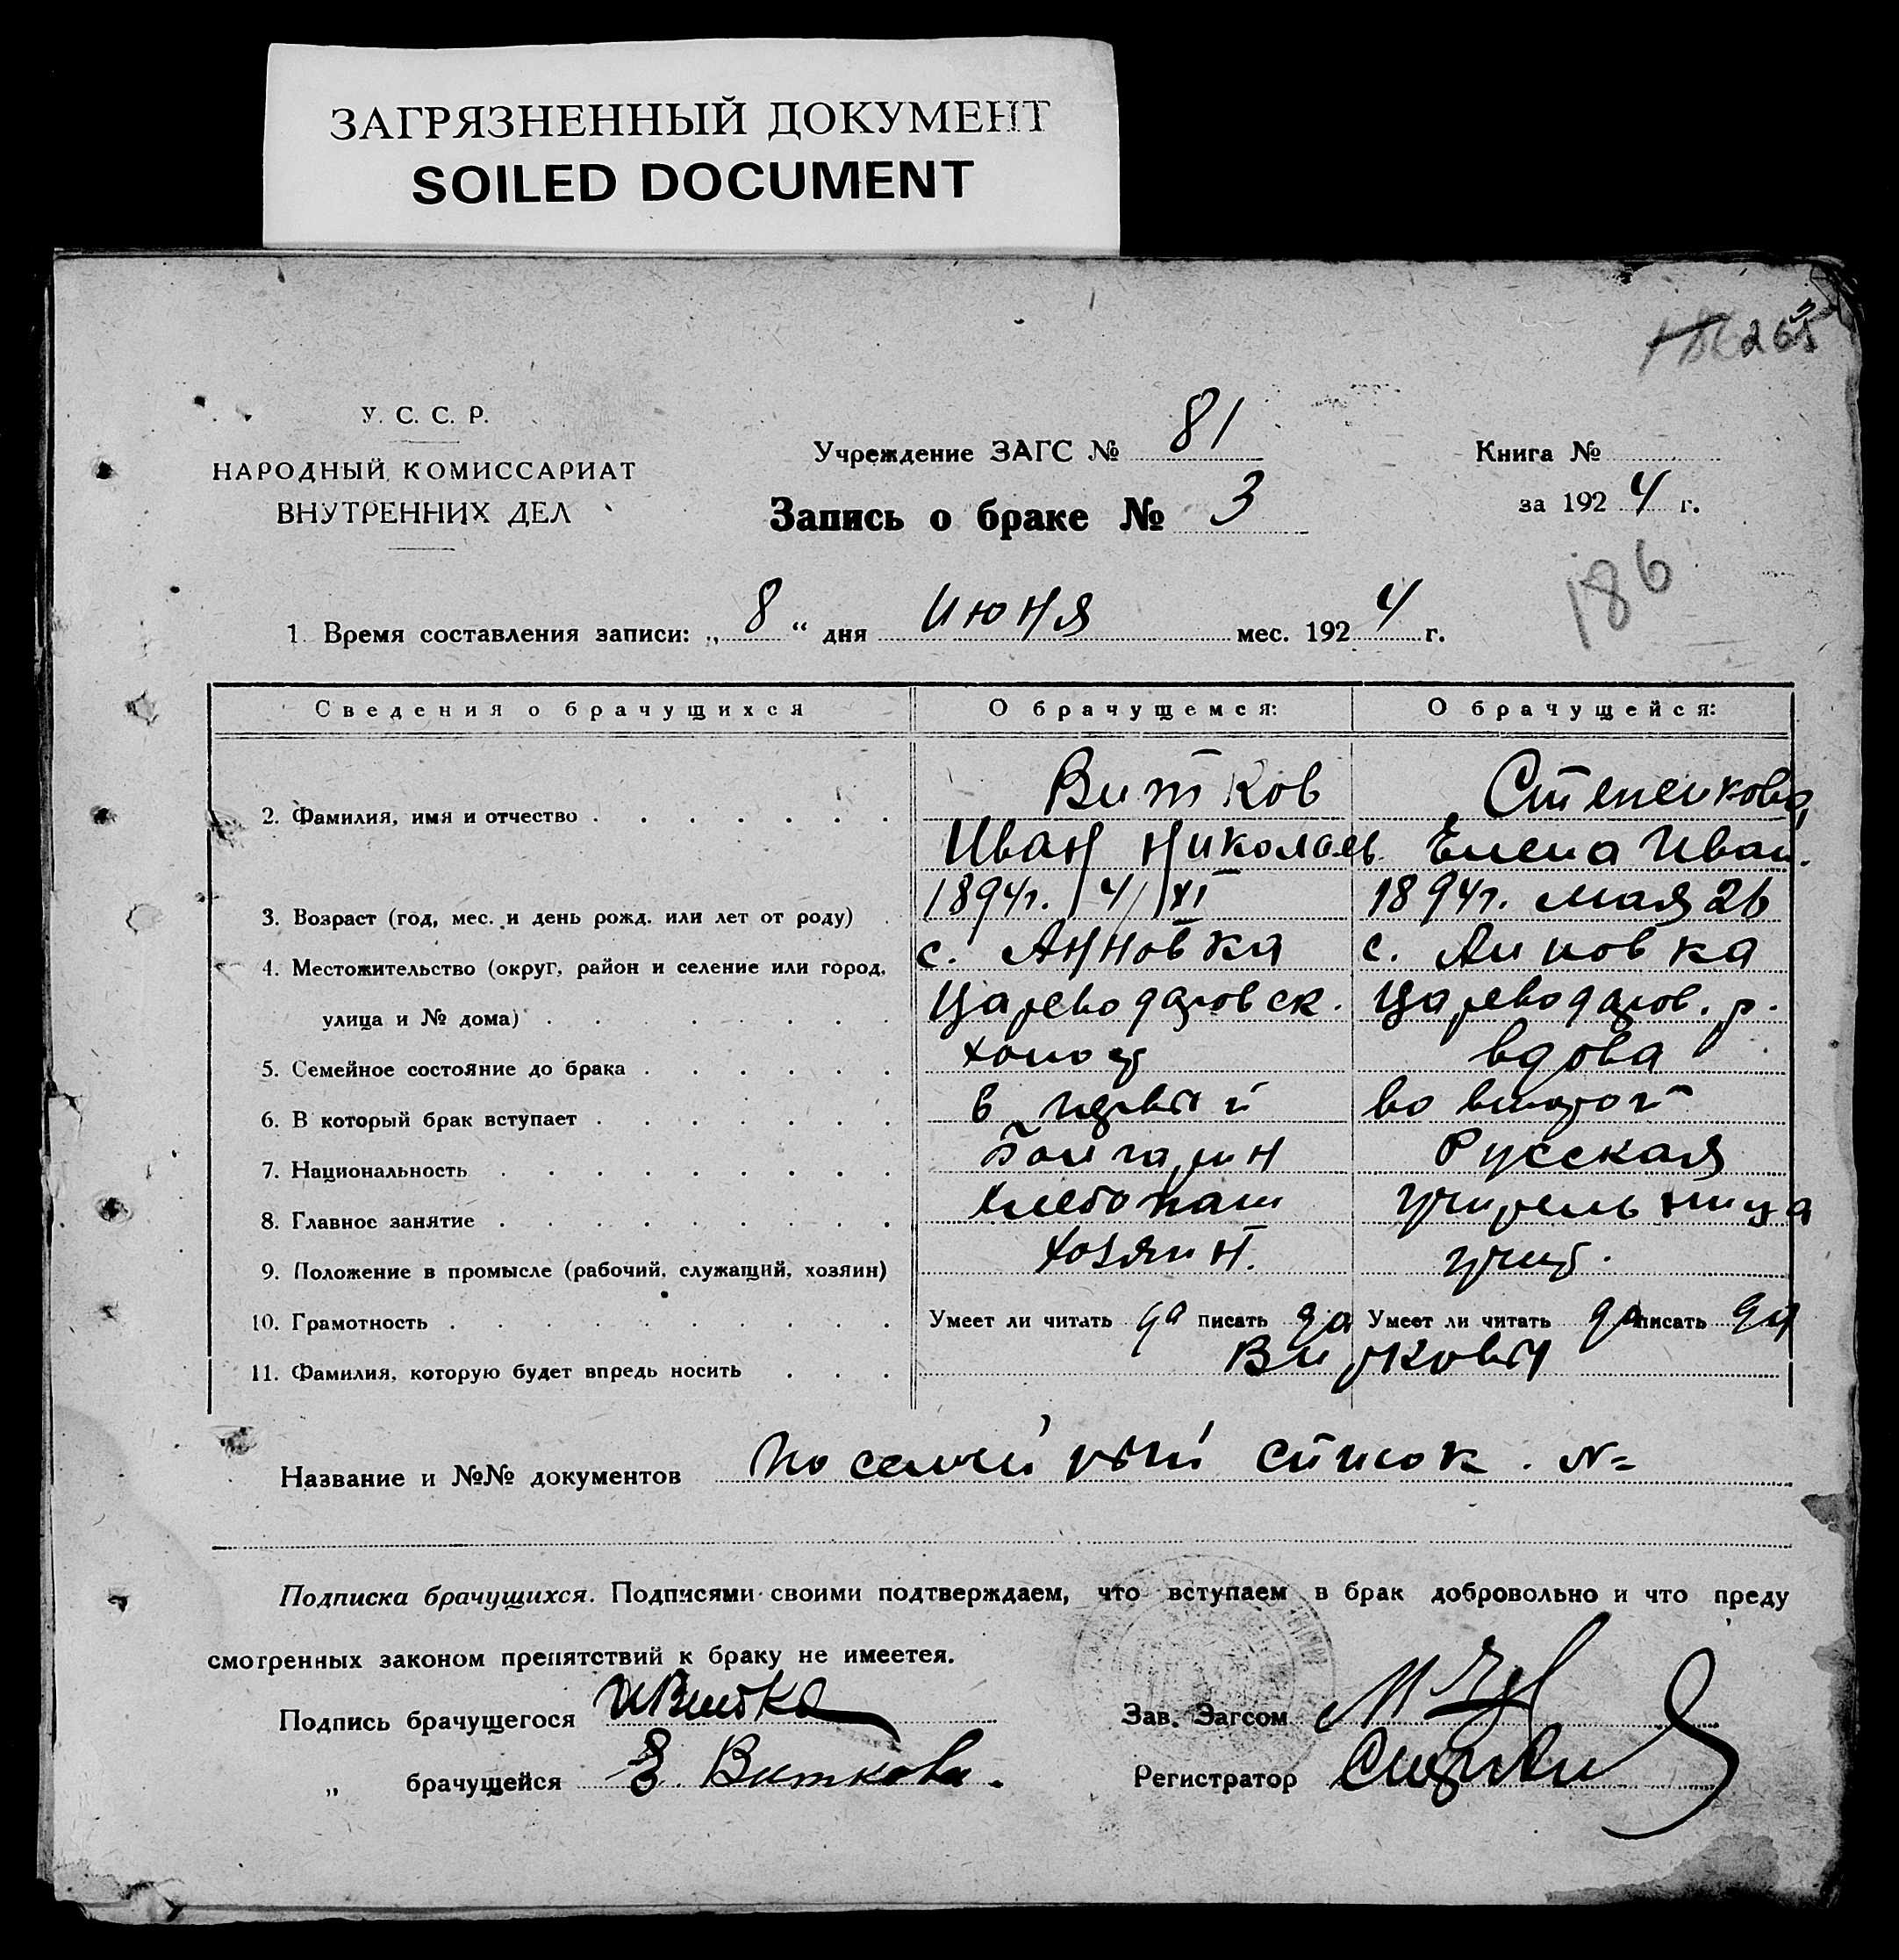 ЗАГРЯЗНЕННЫЙ ДОКУМЕНТ
SOILED DOCUMENT
У. С. С. Р.
НАРОДНЫЙ КОМИССАРИАТ
ВНУТРЕННИХ ДЕЛ
Учреждение ЗАГС № 81
Запись о браке № 3
Книга №
за 1924 г.
186
1. Время составления записи: „ 8 “ дня июня мес. 1924 г.
Сведения о брачущихся О брачущемся: О брачущейся:
Витков
2. Фамилия, имя и отчество
Иван Николаев. Елена Иван.
3. Возраст (год, мес. и день рожд. или лет от роду) 1894г. 4/XI 1894г. мая 26
4. Местожительство (округ, район и селение или город, с. Анновка с.
улица и № дома) Цареводаровск. Цареводаров. р.
5. Семейное состояние до брака холост вдова
6. В который брак вступает в первый во второй
7. Национальность Болгарин Русская
8. Главное занятие хлебопаш учительница
9. Положение в промысле (рабочий, служащий, хозяин) хозяин. учит.
10. Грамотность Умеет ли читать да писать да Умеет ли читать да писать да
11. Фамилия, которую будет впредь носить Витковы
Название и №№ документов посемейный список. №
Подписка брачущихся. Подписями своими подтверждаем, что вступаем в брак добровольно и что преду
смотренных законом препятствий к браку не имеетея.
Подпись брачущегося ИВитко Зав. Загсом
„ брачущейся Е. Виткова. Регистратор